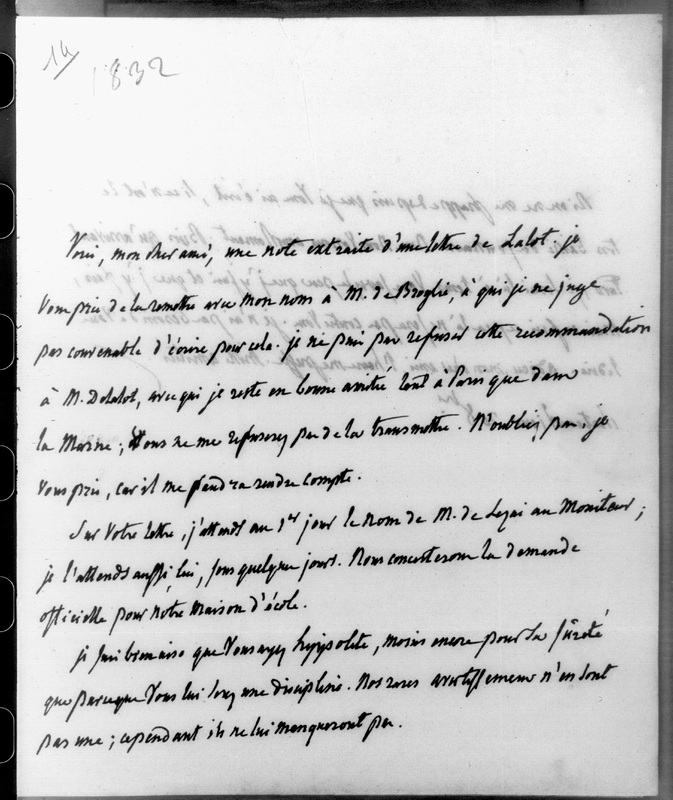 14
1832
Voici, mon cher ami, une note extraite d'une lettre de Lalot. je
vous prie de la remettre avec mon nom à M. de Broglie, à qui je ne juge
pas convenable d'écrire pour cela. je ne puis pas refuser cette recommandation
à M. Delalot, avec qui je reste en bonne amitié tant à Paris que dans
la Marne; Vous ne me refuserez pas de la transmettre. N'oubliez pas, je
vous prie, car il me faudra rendre compte.
Sur votre lettre, j'attends au 1er jour le nom de M. de Lezai au Moniteur;
je l'attends aussi, lui, sous quelques jours. Nous concerterons la demande
officielle pour notre maison d'école.
je suis bien aise que Vous ayez hyppolite, moins encore pour la sûreté
que parceque Vous lui serez une discipline. Nos rares avertissemens n'en sont
pas une; cependant ils ne lui manqueront pas.